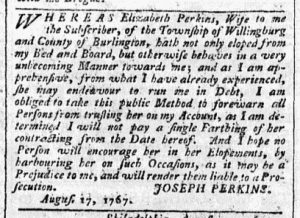 WHEREAS Elizabeth Perkins, Wife to me
the Subscriber, of the Township of Willingburg
and County of Burlington, hath not only eloped from
my Bed and Board, but otherwise behaves in a very
unbecoming Manner towards me; and as I am ap-
prehensive, from what I have already experienced,
she may endeavour to run me in Debt, I am
obliged to take this public Method to forewarn all
Persons from trusting her on my Account, as I am de-
termined I will not pay a single Farthing of her
contracting from the Date hereof. And I hope no
Person will encourage her in her Elopements, by
harbouring her on such Occasions, as it may be a
Prejudice to me, and will render them liable to a Pro-
secution. JOSEPH PERKINS.
August 17, 1767.